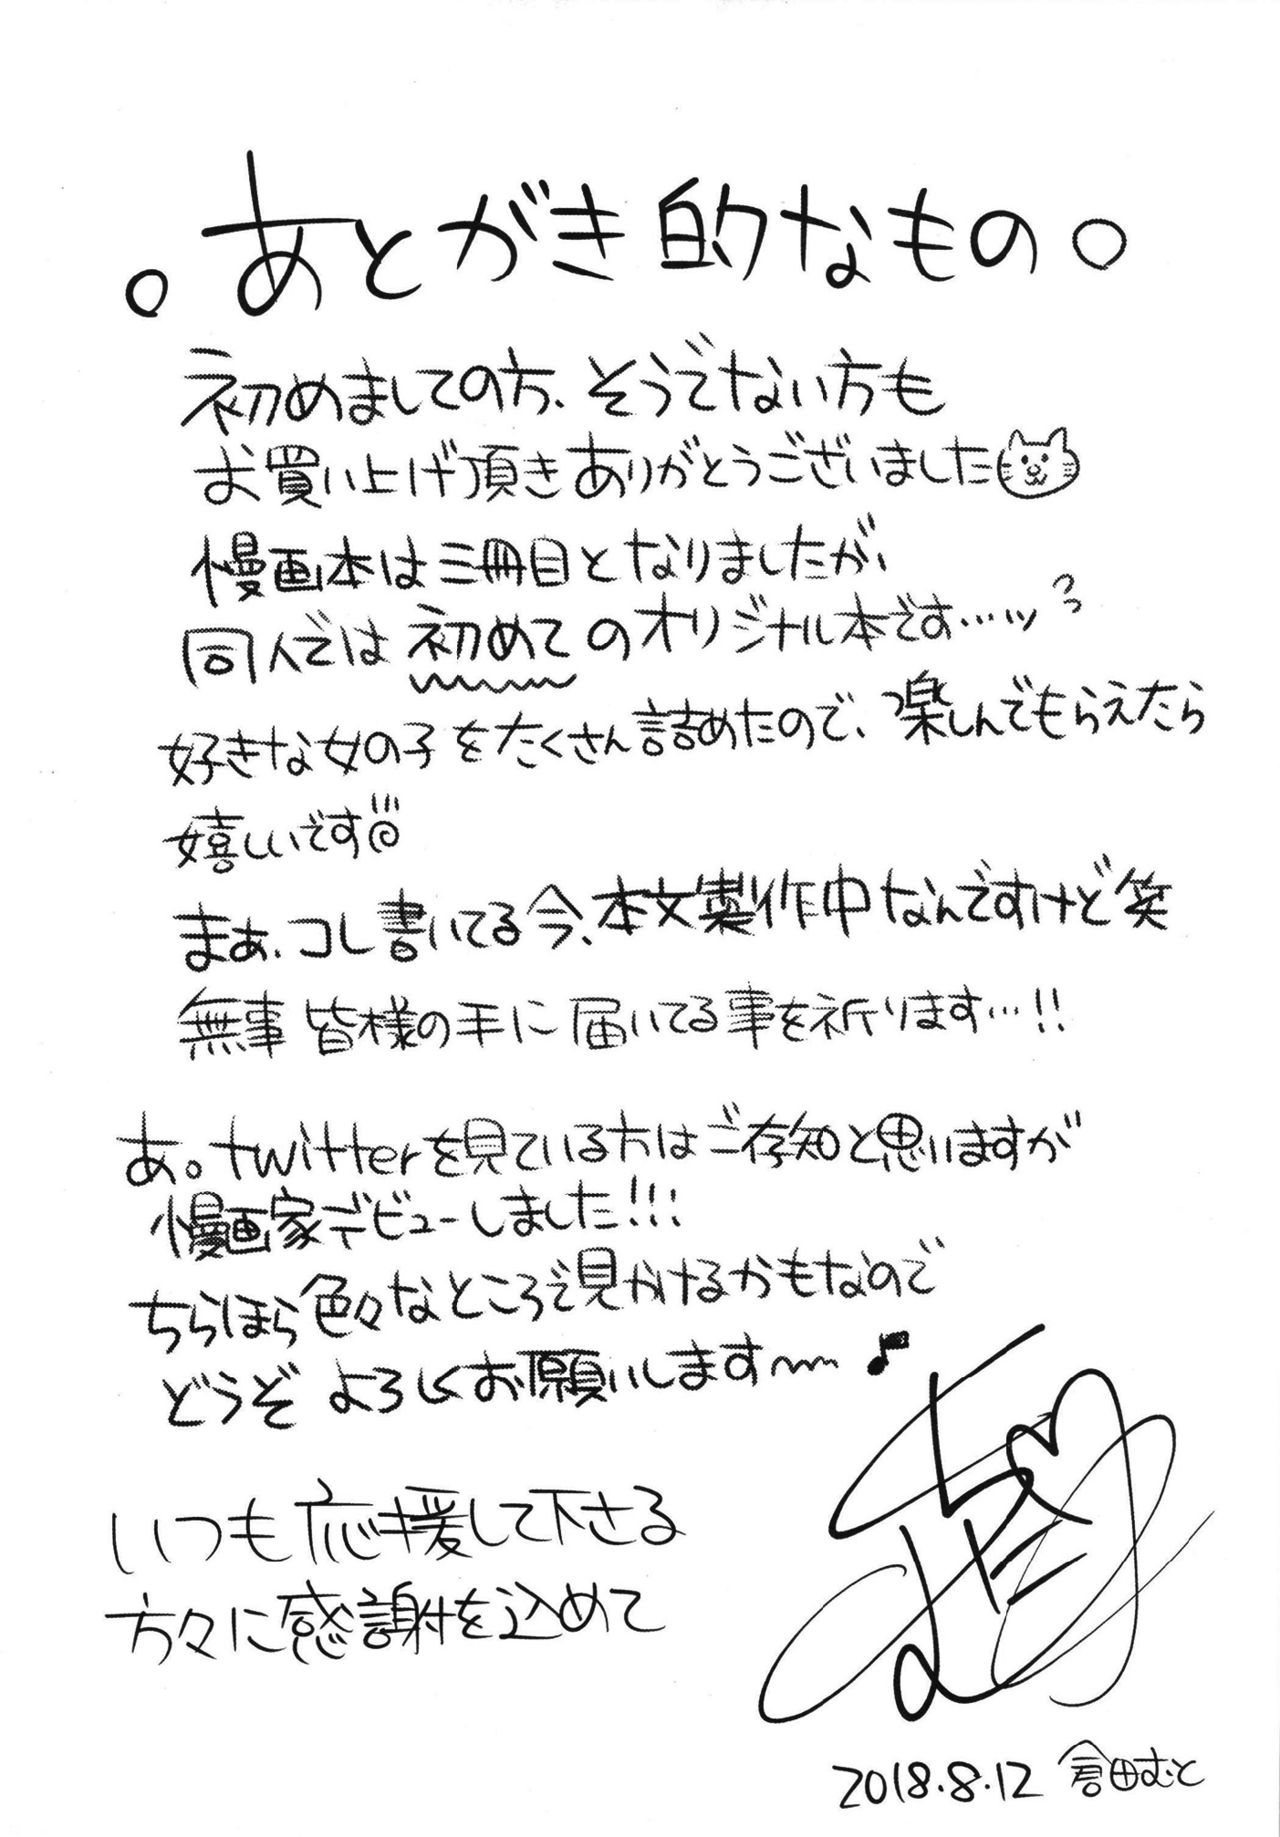 。あとがき的なもの。
初めましての方、そうでない方も
お買い上げ頂きありがとうございました
漫画本は三冊目となりましたが、
同人では初めてのオリジナル本です…ッ
好きな女の子をたくさん詰めたので、楽しんでもらえたら
嬉しいです
まぁ、コレ書いてる今、本文製作中なんですけど笑
無事皆様の手に届いてる事を祈ります…!!
あ。twitterを見ている方はご存知と思いますが
漫画家デビューしました!!!
ちらほら色々なところで見かけるかもなので
どうぞよろしくお願いします〜♪
いつも応援して下さる
方々に感謝を込めて
2018.8.12 倉田むと